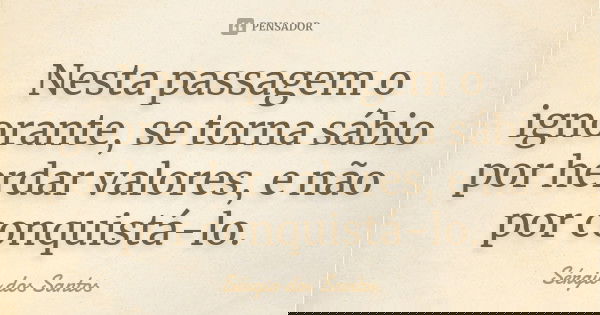 PENSADOR
Nesta passagem o
ignorante, se torna sábio
por herdar valores, e não
por conquistá-lo.
Sérgio dos Santos